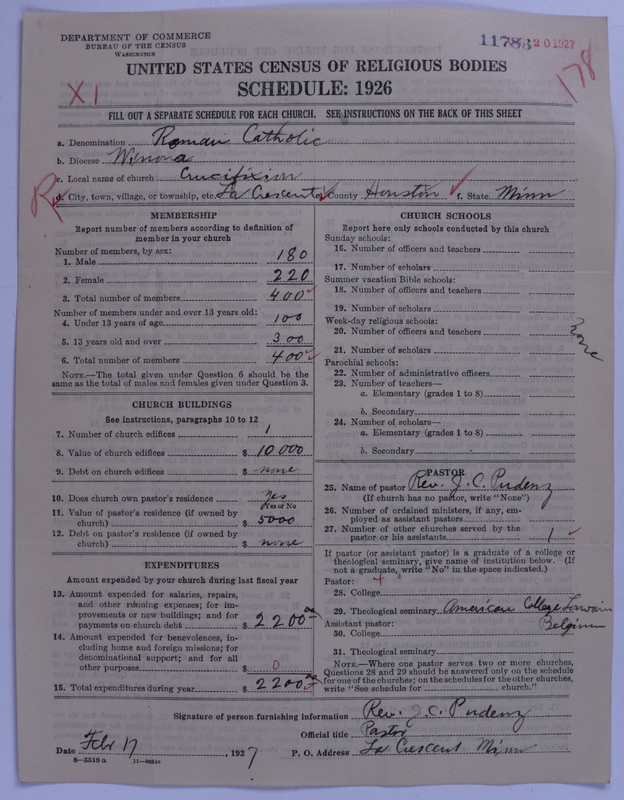 DEPARTMENT OF COMMERCE
BUREAU OF THE CENSUS
WASHINGTON
11783 20 1927
178
UNITED STATES CENSUS OF RELIGIOUS BODIES
SCHEDULE: 1926
XI
FILL OUT A SEPARATE SCHEDULE FOR EACH CHURCH. SEE INSTRUCTIONS ON THE BACK OF THIS SHEET
a. Denomination Roman Catholic
b. Diocese Winona
c. Local name of church Crucifixion
d. City, town, village, or township, etc. La Crescent County Houston f. State Minn
MEMBERSHIP
Report number of members according to definition of
member in your church
Number of members, by sex:
1. Male 180
2. Female 220
3. Total number of members 400
Number of members under and over 13 years old:
4. Under 13 years of age 100
5. 13 years old and over 300
6. Total number of members 400
NOTE.—The total given under Question 6 should be the
same as the total of males and females given under Question 3.
CHURCH BUILDINGS
See instructions, paragraphs 10 to 12
7. Number of church edifices 1
8. Value of church edifices $ 10000
9. Debt on church edifices $ none
10. Does church own pastor's residence yes
Yes or No
11. Value of pastor's residence (if owned by
church) $ 5000
12. Debt on pastor's residence (if owned by
church) $ none
EXPENDITURES
Amount expended by your church during last fiscal year
13. Amount expended for salaries, repairs,
and other running expenses; for im-
provements or new buildings; and for
payments on church debt $ 2200 00
14. Amount expended for benevolences, in-
cluding home and foreign missions; for
denominational support; and for all
other purposes $ 0
15. Total expenditures during year $ 2200 00
CHURCH SCHOOLS
Report here only schools conducted by this church
Sunday schools:
16. Number of officers and teachers
17. Number of scholars
Summer vacation Bible schools:
18. Number of officers and teachers
19. Number of scholars
Week-day religious schools:
20. Number of officers and teachers
21. Number of scholars
Parochial schools:
22. Number of administrative officers
23. Number of teachers—
a. Elementary (grades 1 to 8)
b. Secondary
24. Number of scholars—
a. Elementary (grades 1 to 8)
b. Secondary
PASTOR
25. Name of pastor Rev. J. C. Pudenz
(If church has no pastor, write "None")
26. Number of ordained ministers, if any, em-
ployed as assistant pastors
27. Number of other churches served by the
pastor or his assistants 1
If pastor (or assistant pastor) is a graduate of a college or
theological seminary, give name of institution below. (If
not a graduate, write "No" in the space indicated.)
Pastor:
28. College
29. Theological seminary American College Louvain
Belgium
Assistant pastor:
30. College
31. Theological seminary
NOTE.—Where one pastor serves two or more churches,
Questions 28 and 29 should be answered only on the schedule
for one of the churches; on the schedules for the other churches,
write "See schedule for church."
Signature of person furnishing information Rev. J. C. Pudenz
Official title Pastor
Date Febr 17, 1927 P. O. Address La Crescent Minn
8—5518 a